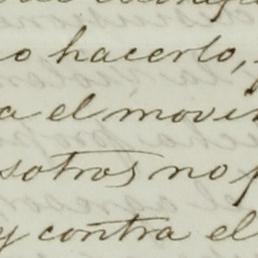 o hacerlo,
a el movi
sotros no p
y contra el